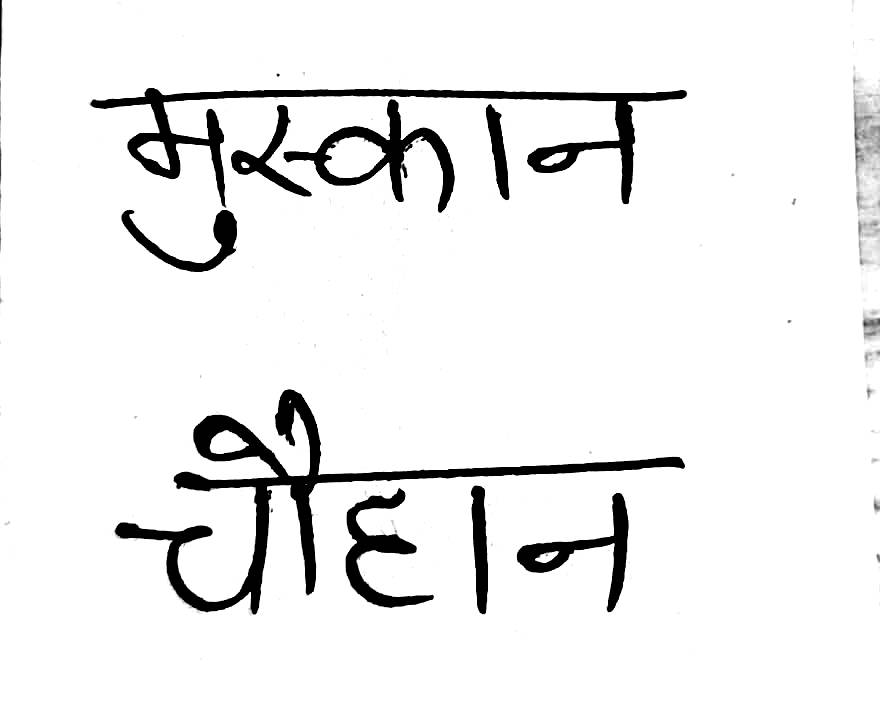 मुस्कान
चौहान